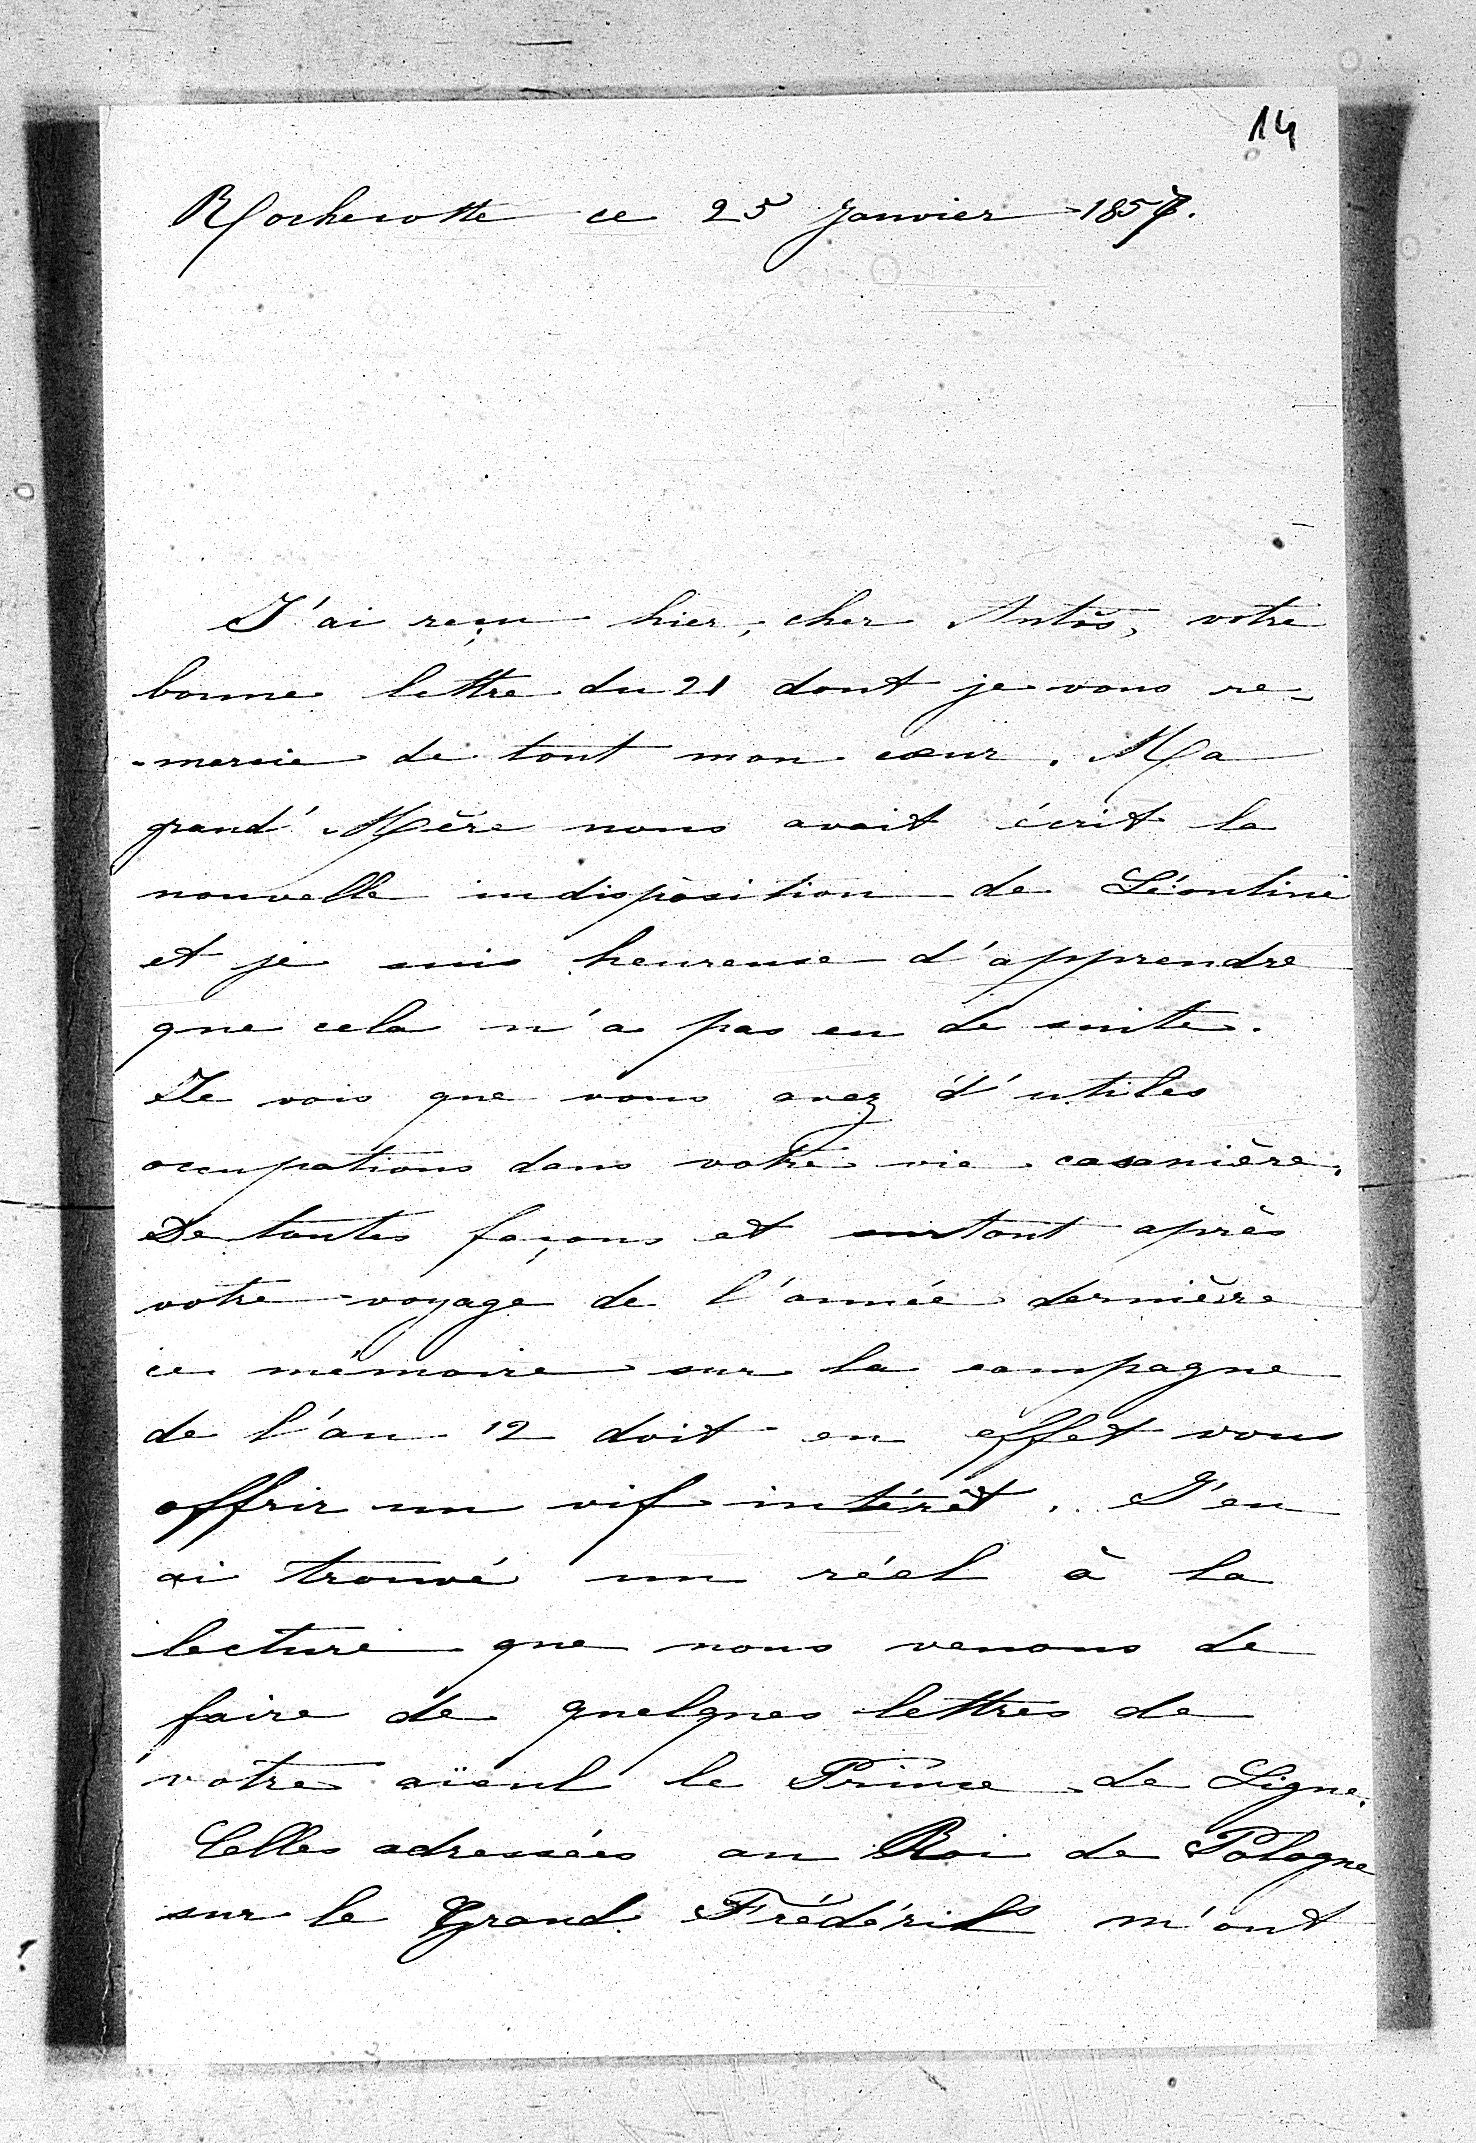 14
Rochecotte ce 25 Janvier 1857.
J'ai reçu hier, cher Antós, votre
bonne lettre du 21 dont je vous re-
-mercie de tout mon cœur. Ma
grand' Mère nous avait écrit la
nouvelle indisposition de Léontine
et je suis heureuse d'apprendre
que cela n'a pas eu de suite.
Je vois que vous avez d'utiles
occupations dans votre vie casanière.
De toutes façons et surtout après
votre voyage de l'année dernière
ce mémoire sur la campagne
de l'an 12 doit en effet vous
offrir un vif intérêt. J'en
ai trouvé un réel à la
lecture que nous venons de
faire de quelques lettres de
votre aïeul le Prince de Ligne.
Celles adressées au Roi de Pologne
sur le Grand Frédéric m'ont